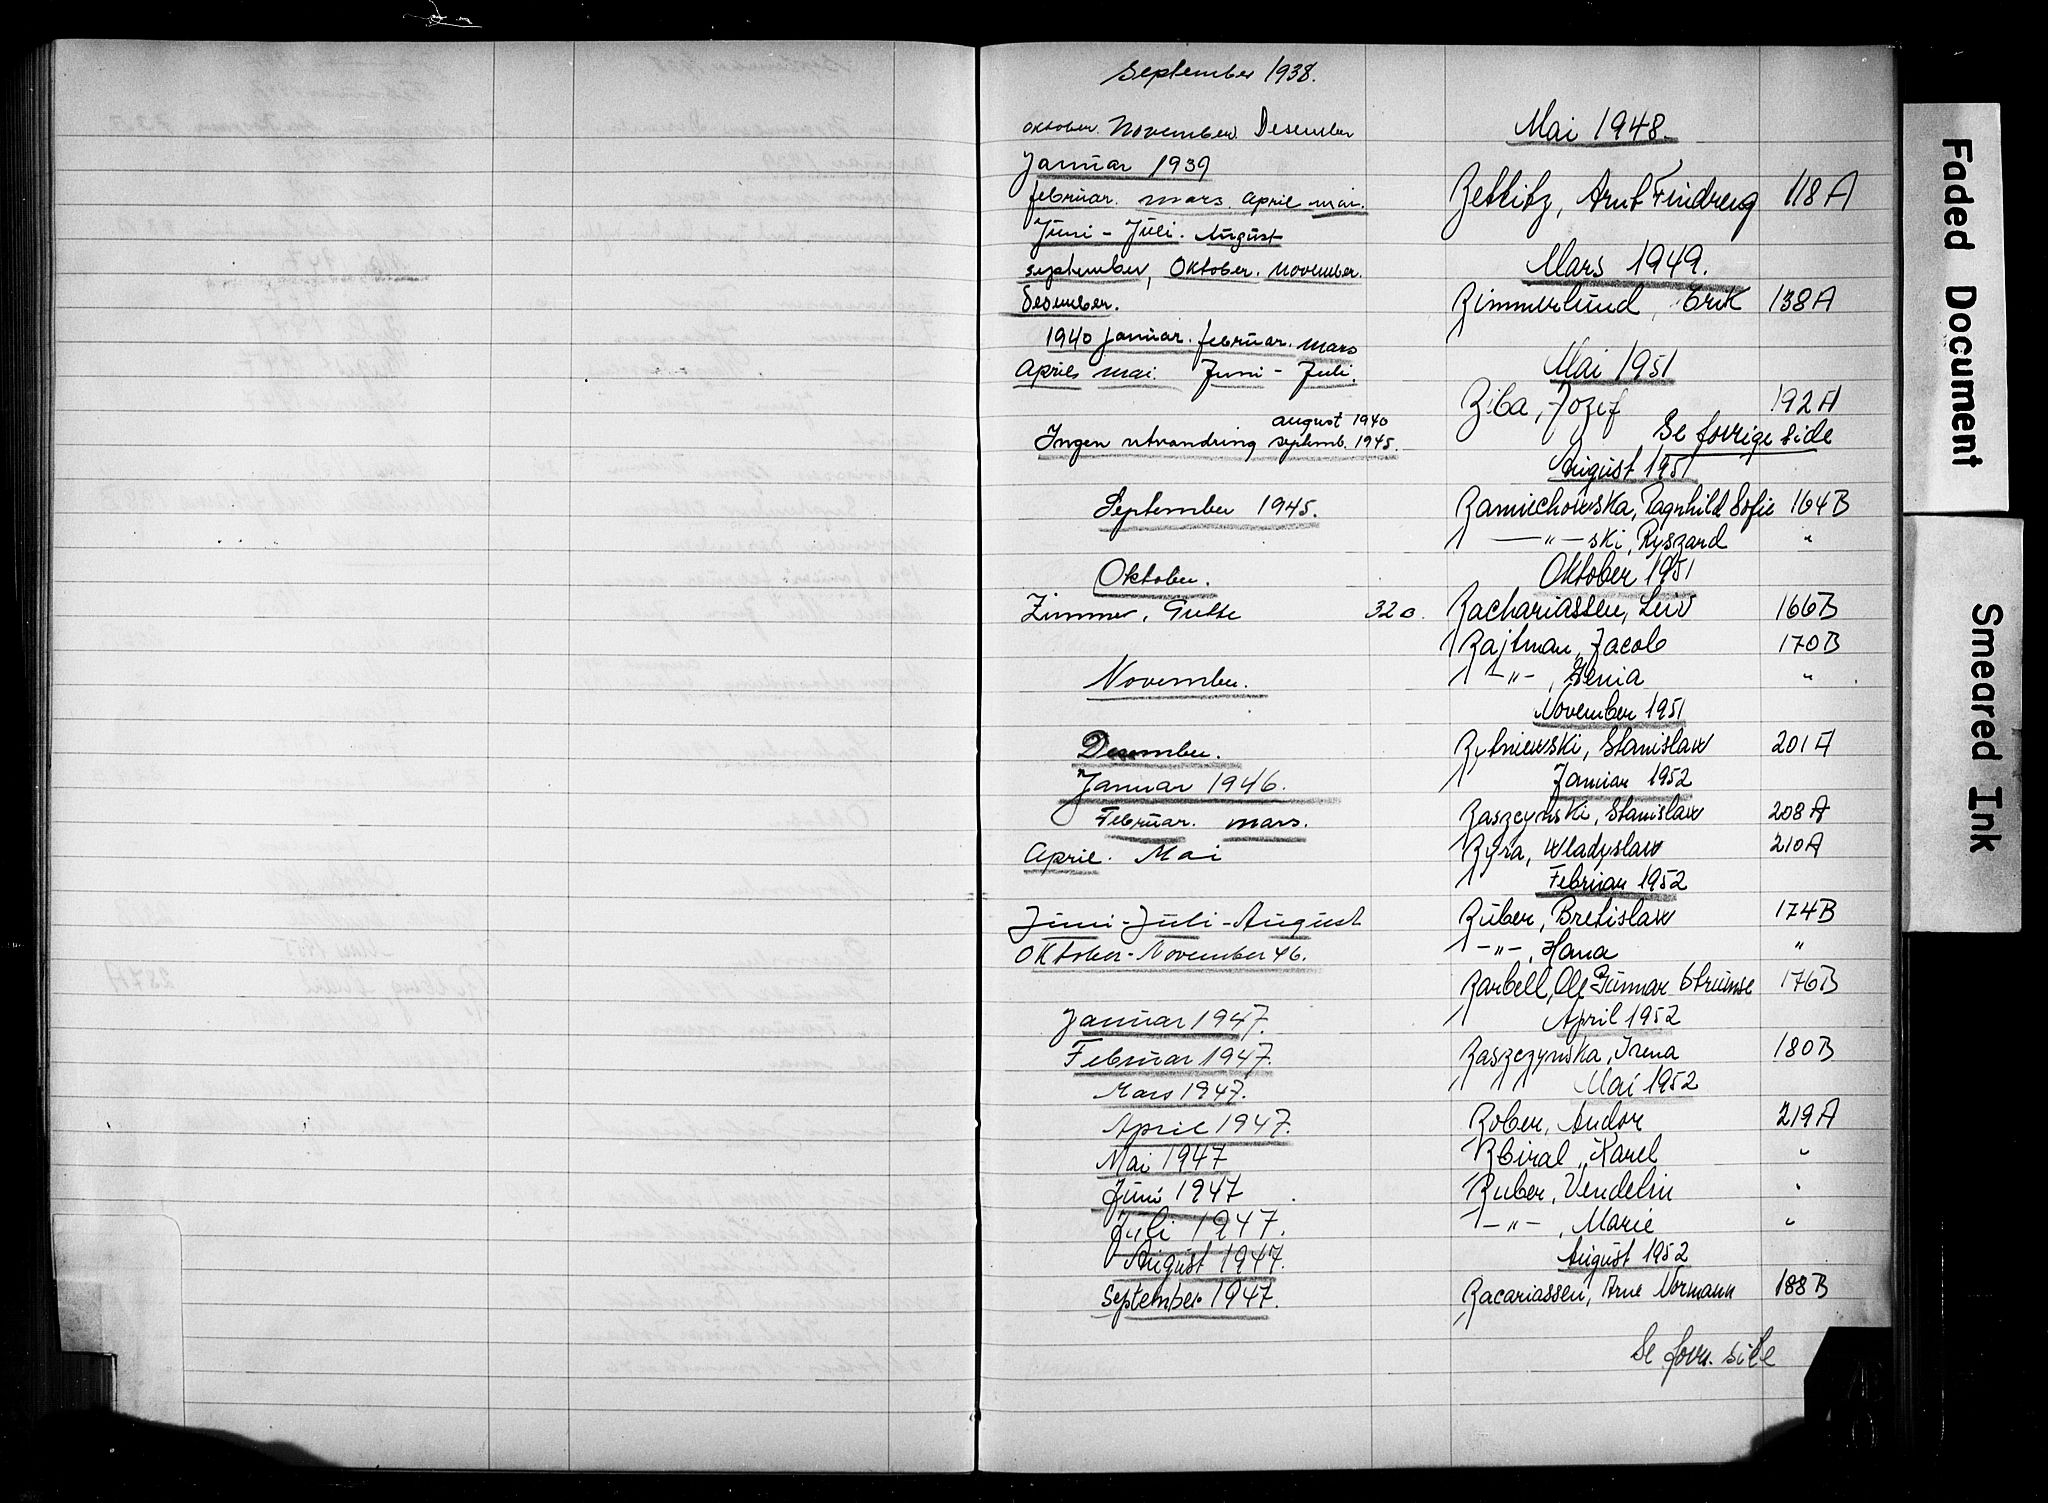 September 1938.
Oktober. November. Desember
Januar 1939
februar. mars. april mai.
Juni - Juli. August
september, Oktober. november.
Desember.
1940 Januar. februar. mars
April mai. Juni - Juli.
august 1940
Ingen utvandring septemb. 1945.
September 1945.
Oktober.
Zimmer, Grethe 320.
November.
Desember.
Januar 1946.
Februar. mars.
April. Mai
Juni - Juli - August
Oktober - November 46.
Januar 1947.
Februar 1947.
Mars 1947.
April 1947.
Mai 1947
Juni 1947
Juli 1947.
August 1947.
September 1947.
Mai 1948.
Zetlitz, Arnt 118A
Mars 1949.
Zimmerlund, Erik 138A
Mai 1951
Ziba, Jozef 192A
Se forrige side
August 1951
Zamiechowska, Ragnhild Sofie 164B
— " — ski, Ryszard "
Oktober 1951
Zachariassen, Leiv 166B
Zajtman, Jacob 170B
- " - , Genia "
November 1951
Zytniewski, Stanislaw 201A
Januar 1952
Zaszcynski, Stanislaw 208A
Zyra, Wladyslaw 210A
Februar 1952
Zuber, Bretislaw 174B
- " - , Hana "
Zarbell, Ole Gunnar Strümse 176B
April 1952
Zaszczynska, Irena 180B
Mai 1952
Zober, Andor 219A
Zbiral, Karel "
Zuber, Vendelin "
- " - , Marie "
August 1952
Zacariassen, Arne Normann 188B
Se forr. side
Faded Document
Smeared Ink